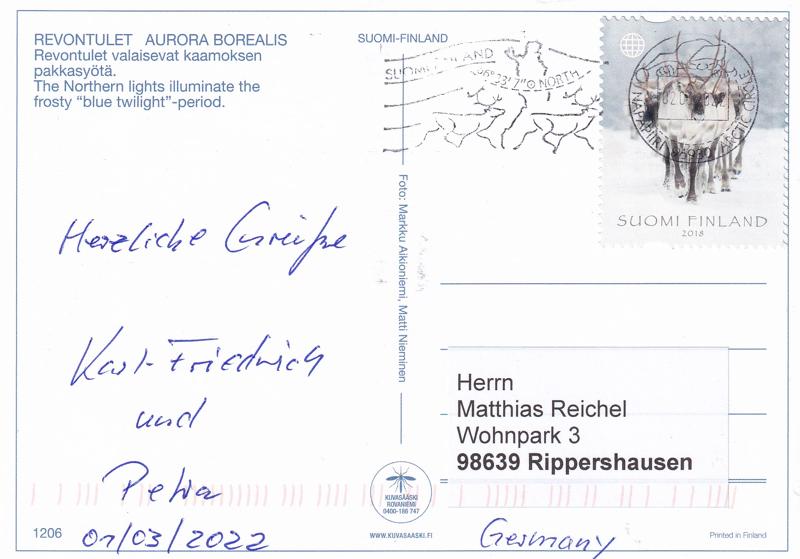 REVONTULET AURORA BOREALIS
Revontulet valaisevat kaamoksen
pakkasyötä.
The Northern lights illuminate the
frosty "blue twilight"-period.
SUOMI-FINLAND
SUOMI FINLAND
66°33'7" NORTH
NAPAPIIRI 96930 ARCTIC CIRCLE
SUOMI FINLAND
2018
Foto: Markku Aikioniemi, Matti Nieminen
Herzliche Grüße
Karl-Friedrich
und
Petra
01/03/2022
Herrn
Matthias Reichel
Wohnpark 3
98639 Rippershausen
Germany
KUVASÄÄSKI
ROVANIEMI
0400-186 747
1206
WWW.KUVASAASKI.FI
Printed in Finland